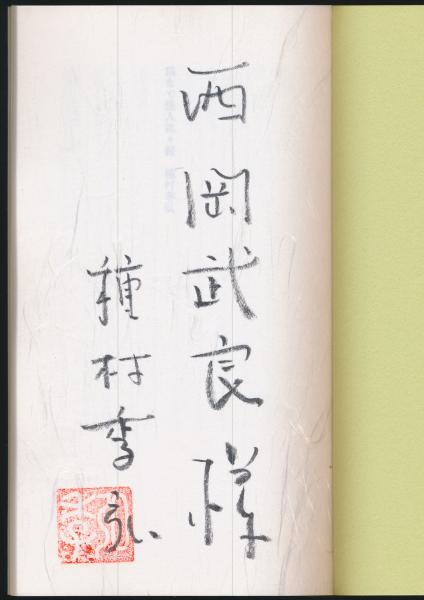 西岡武良様
種村季弘